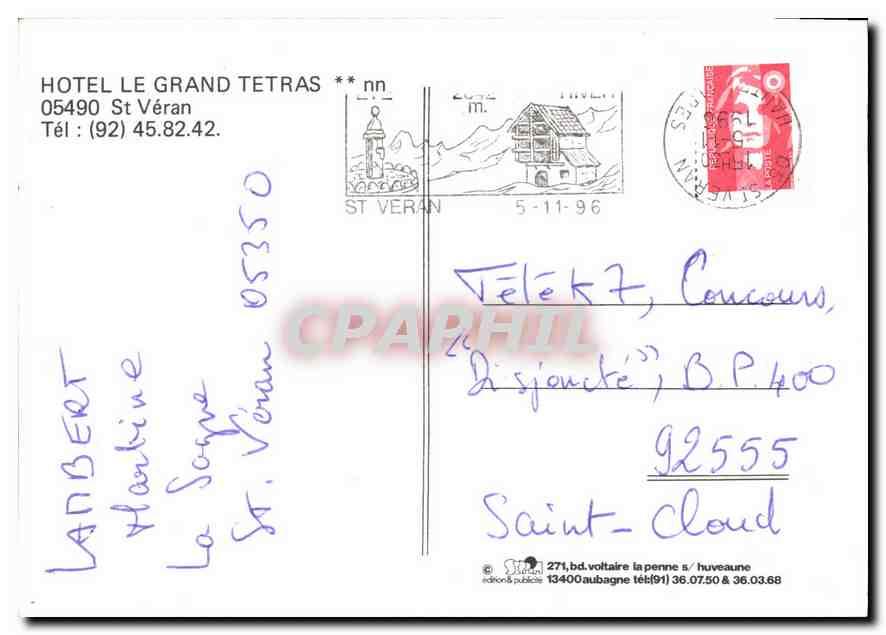 HOTEL LE GRAND TETRAS ** nn
05490 St Véran
Tél : (92) 45.82.42.
m.
ST VERAN 5-11-96
REPUBLIQUE FRANCAISE
LA POSTE
ST VERAN
LAMBERT
Martine
La
St. Véran 05350
Télé K7, Concours,
"Disjoncté", B.P. 400
92555
Saint-Cloud
CPAPHIL
© 271, bd. voltaire la penne s/ huveaune
édition & publicité 13400 aubagne tél:(91) 36.07.50 & 36.03.68